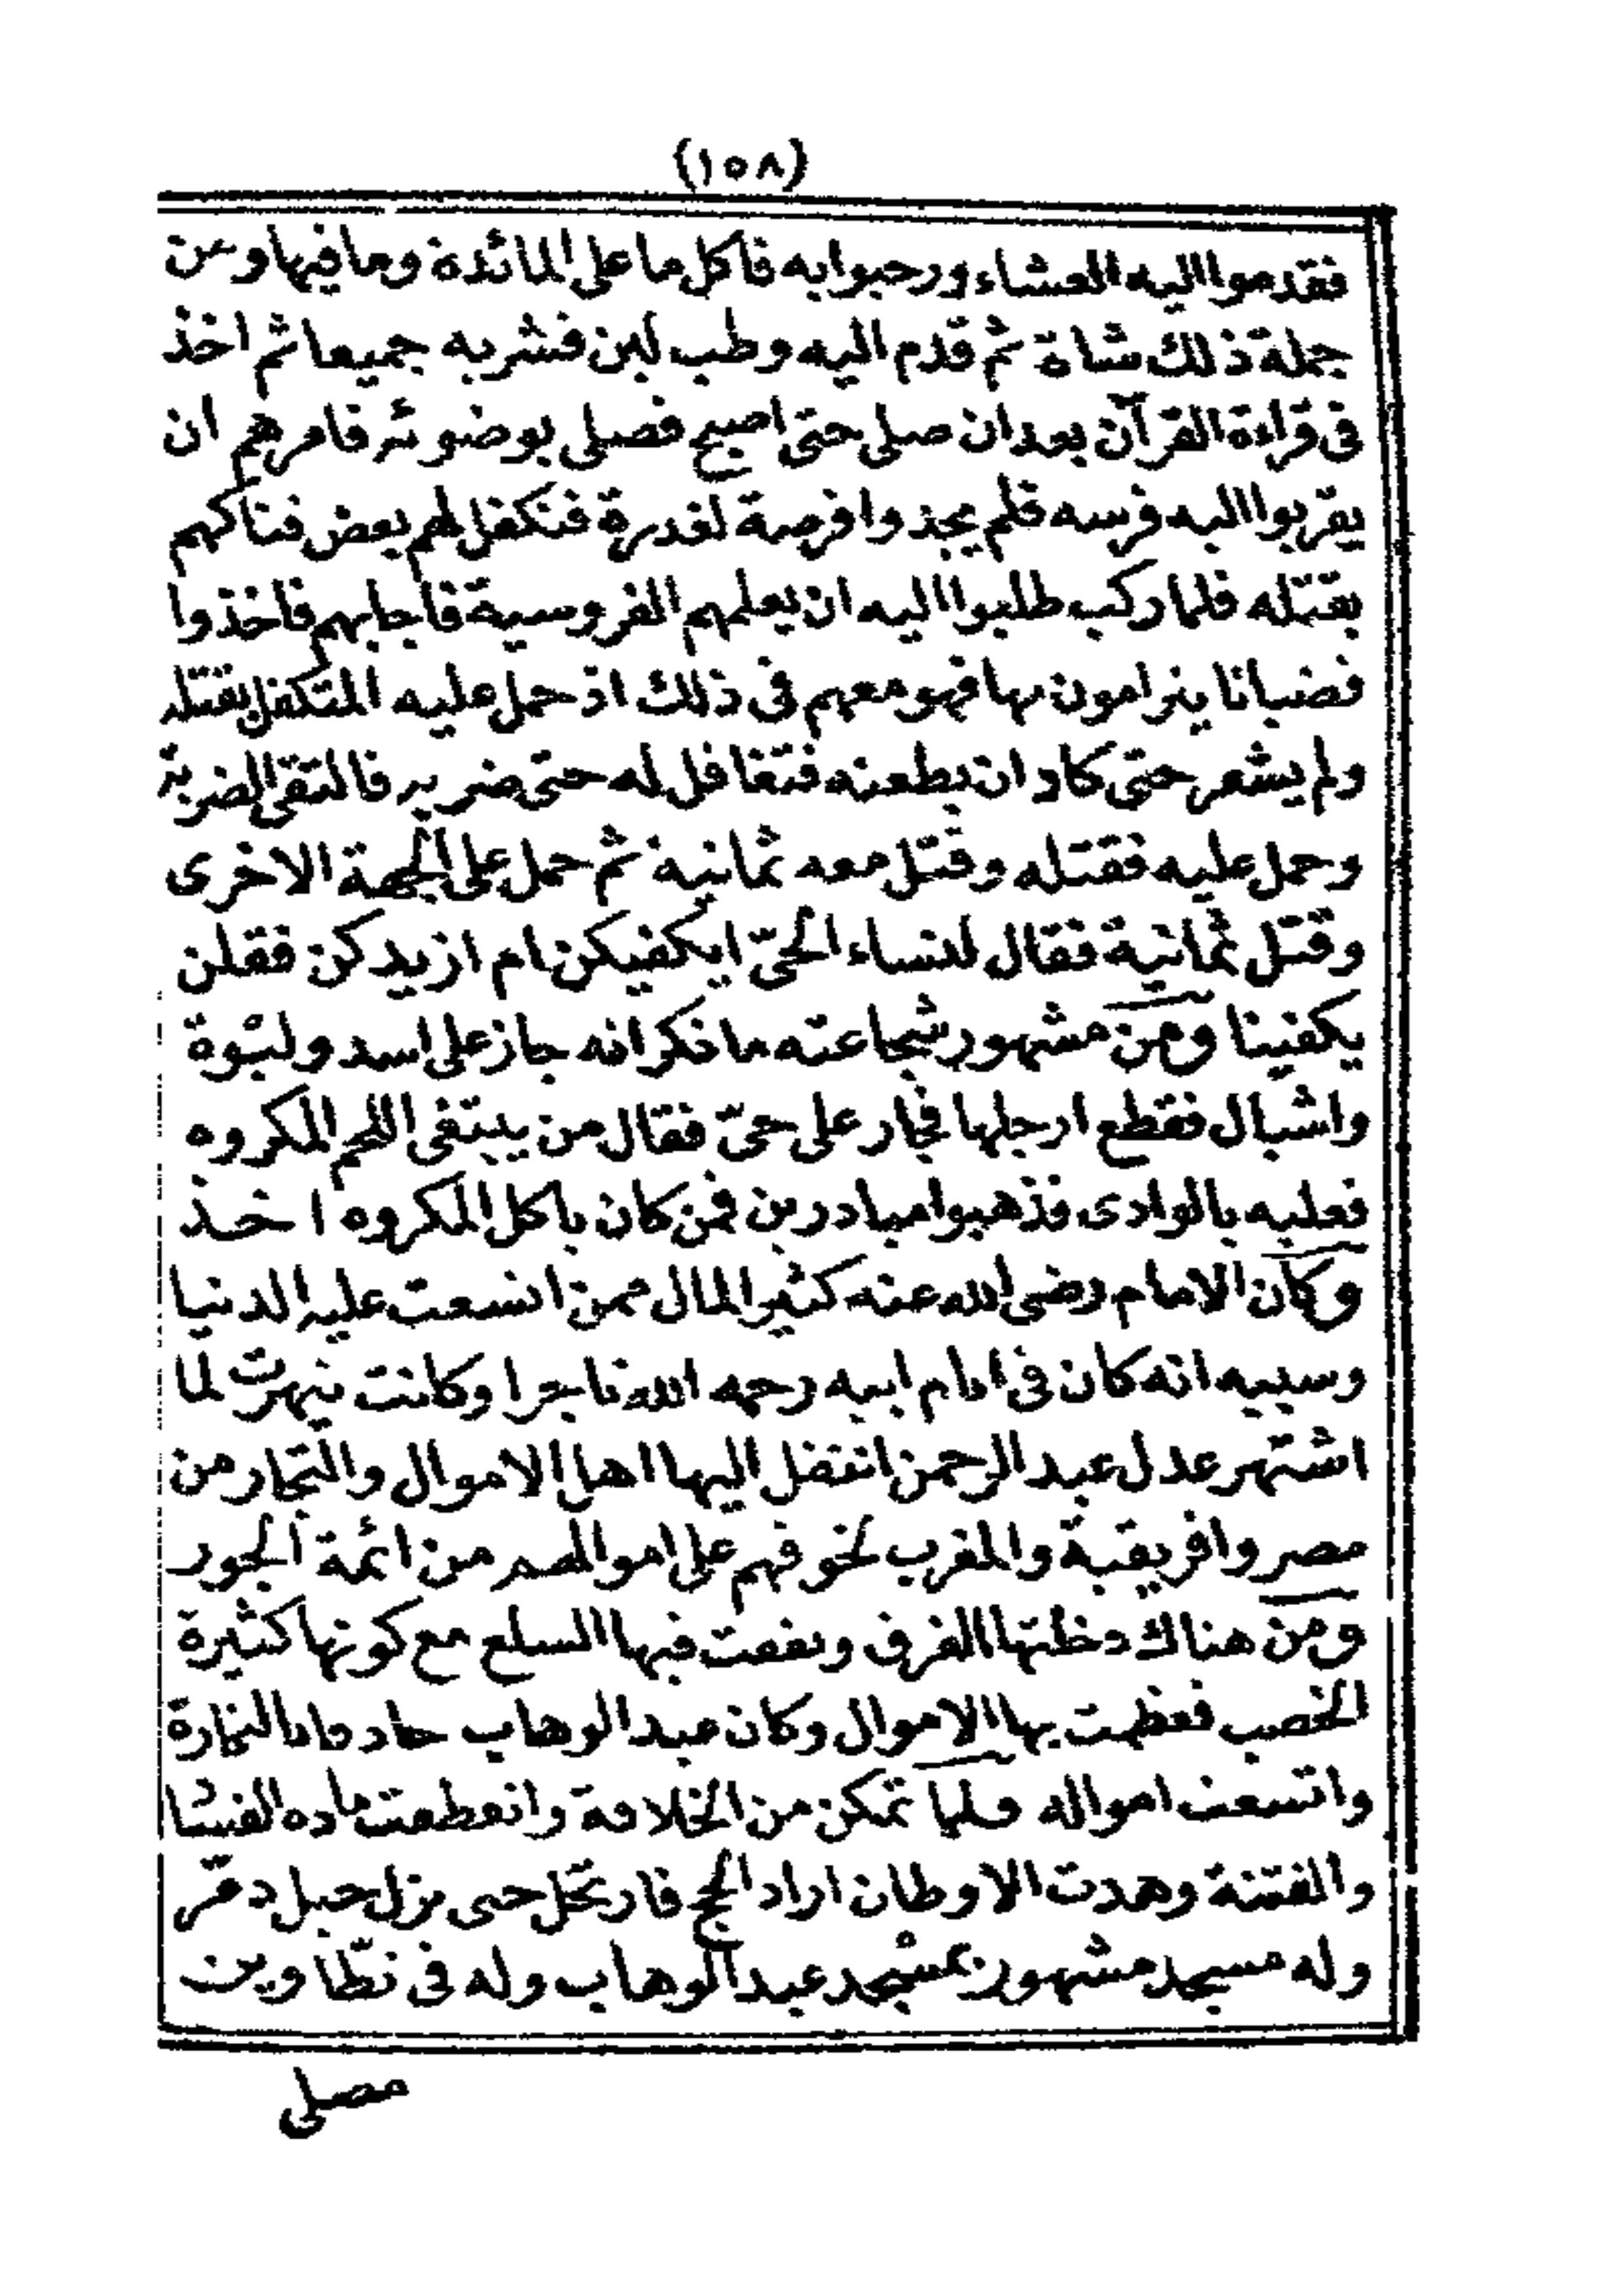 (١٥٨)
فقدموا اليه العشاء ورحبوا به فاكل ما على المائدة وما فيها ومن
جملة ذلك شاة ثم قدم اليه وطب لبن فشربه جميعا ثم اخذ
فى قراءة القرآن بعد ان صلى حتى اصبح فصلى بوضوئه فامرهم ان
يقربوا اليه فرسه فلم يجدوا فرصة لغدره فتكفل لهم بعض فتاكهم
بقتله فلما ركب طلبوا اليه ان يعلمهم الفروسية فاجابهم فاخذوا
قضبانا يترامون بها فهو معهم فى ذلك اذ حمل عليه المتكفل بقتله
ولم يشعر حتى كاد ان يطعنه فتغافل له حتى ضربه فالتقى الضربة
وحمل عليه فقتله وقتل معه ثمانية ثم حمل على الجهة الاخرى
وقتل ثمانية فقال لنساء الحىّ ايكفيكن ام ازيدكن فقلن
يكفينا ومن مشهور شجاعته ما ذكر انه جاز على اسد ولبوة
واشبال فقطع ارجلها فجاز على حىّ فقال من يبتغى اللحم المكروه
فعليه بالوادى فذهبوا مبادرين فمن كان ياكل المكروه اخذ
وكان الامام رضى الله عنه كثير المال ممن اتسعت عليه الدنيا
وسببه انه كان فى ايام ابيه رحمه الله تاجرا وكانت تيهرت لما
اشتهر عدل عبد الرحمن انتقل اليها اهل الاموال والتجار من
مصر وافريقية والمغرب لخوفهم على اموالهم من ائمة الجور
ومن هناك دخلتها الفرق ونفقت فيها السلع مع كونها كثيرة
الخصب فعظمت بها الاموال وكان عبد الوهاب التجارة
واتسعت امواله فلما تمكن من الخلافة وانقطعت مادة
والفتنة وهدت الاوطان اراد الحج فارتحل حتى نزل جبل دمّر
وله مسجد مشهور بمسجد عبد الوهاب وله فى تطّاوين
مصلى